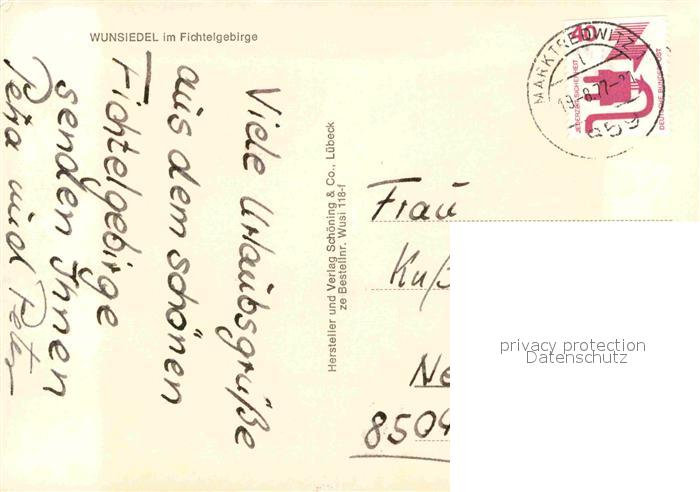 WUNSIEDEL im Fichtelgebirge
Viele Urlaubsgrüße
aus dem schönen
Fichtelgebirge
senden Ihnen
Petra und Peter
Hersteller und Verlag Schöning & Co., Lübeck
ze Bestellnr. Wusi 118-f
40
JEDERZEIT SICHERHEIT
DEUTSCHE BUNDESPOST
MARKTREDWITZ
1
859
Frau
Kuß
Ne
8504
privacy protection
Datenschutz